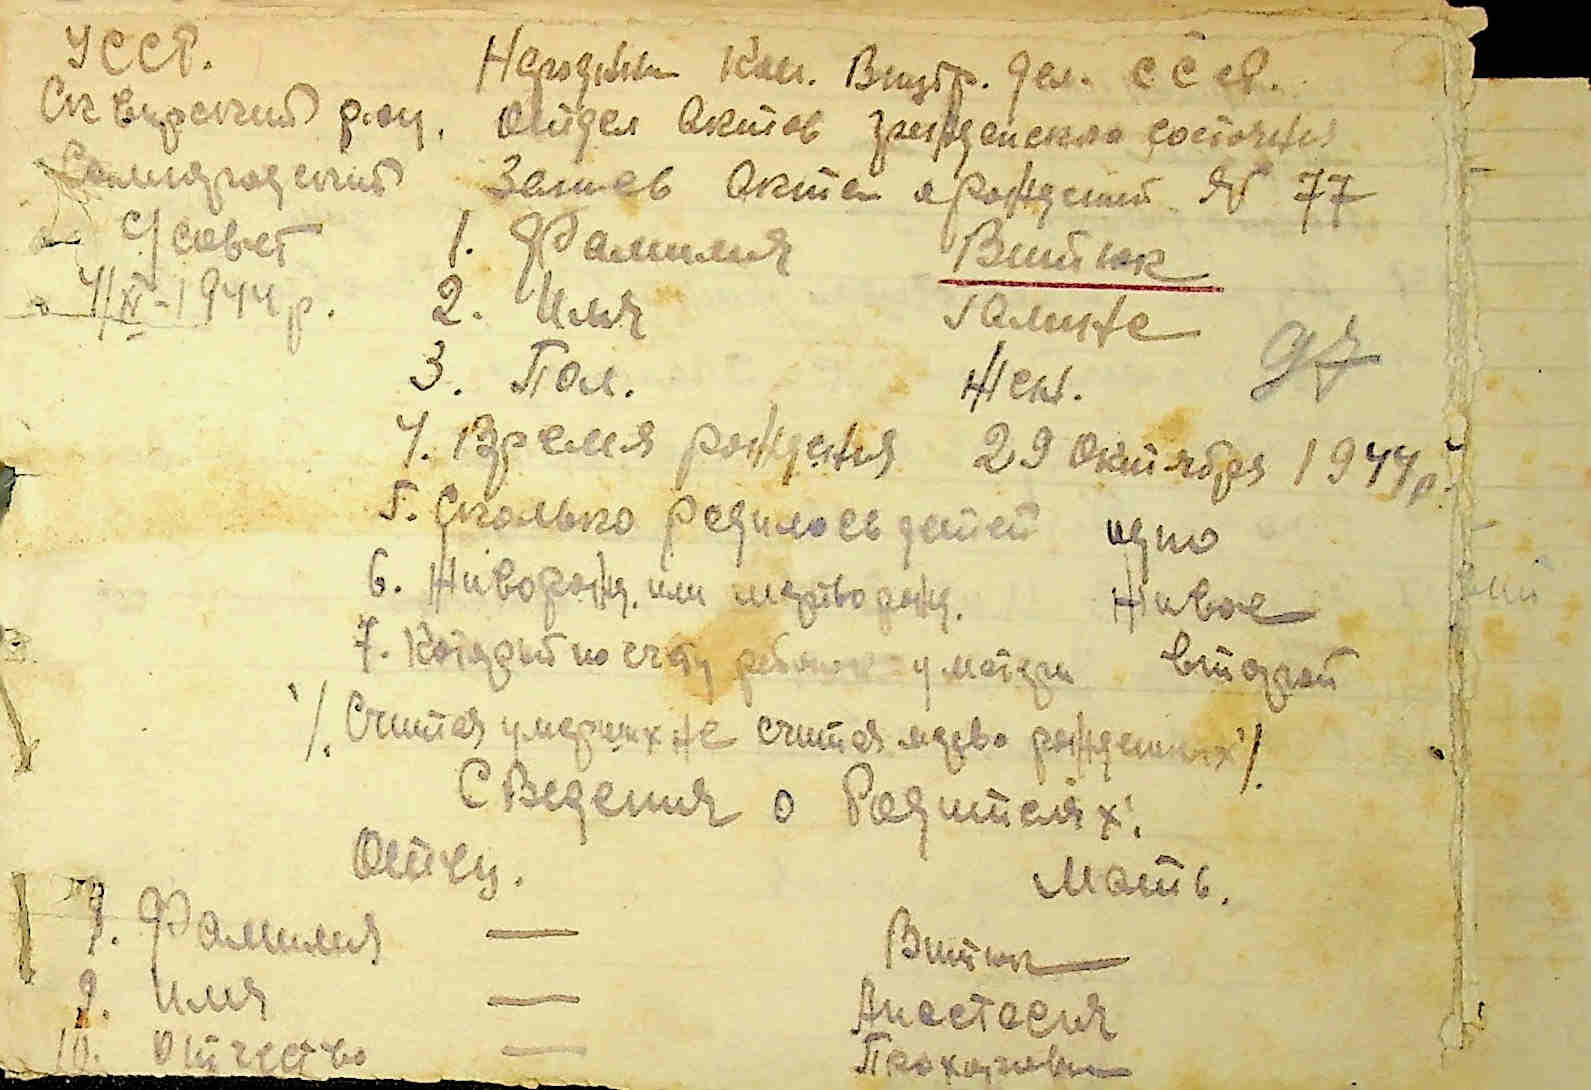 УССР.
Народный Ком. Внутр. дел. СССР.
Сквирский р-он.
Отдел Актов гражданского состояния
Запись Акта о рождении № 77
с/совет
4/XI-1944 р.
1. Фамилия Витюк
2. Имя Галина
3. Пол. Жен.
97
4. Время рождения 29 Октября 1944 р.
5. Сколько родилось детей одно
6. Живорожд. или мертворожд. Живое
7. Который по счету ребенок у матери второй
/. Считая умерших не считая мертво рожденных /.
Сведения о Родителях:
Отец. Мать.
8. Фамилия — Витюк
9. Имя — Анастасия
10. Отчество — Прохоровна